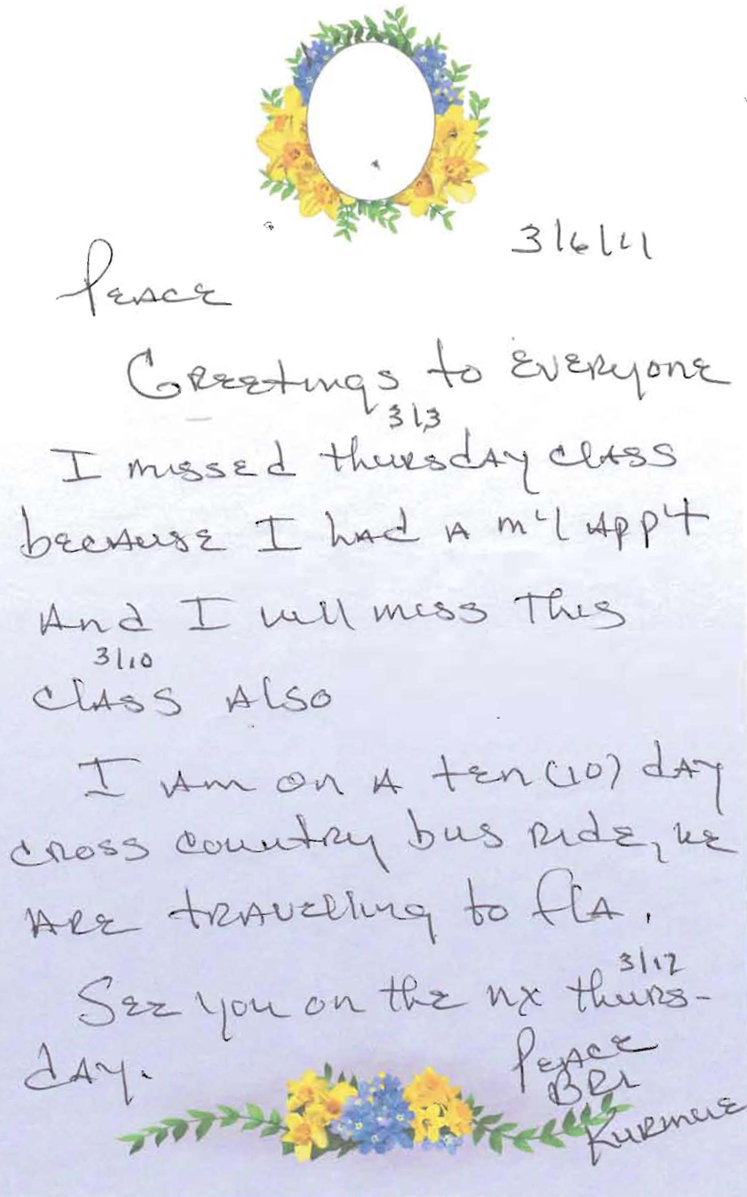 3/6/11
Peace
Greetings to everyone
3/3
I missed thursday class
because I had a m'l app't
And I will miss this
3/10
class also
I am on a ten (10) day
cross country bus ride, we
are travelling to fla.
3/17
See you on the nx thurs-
day.
Peace